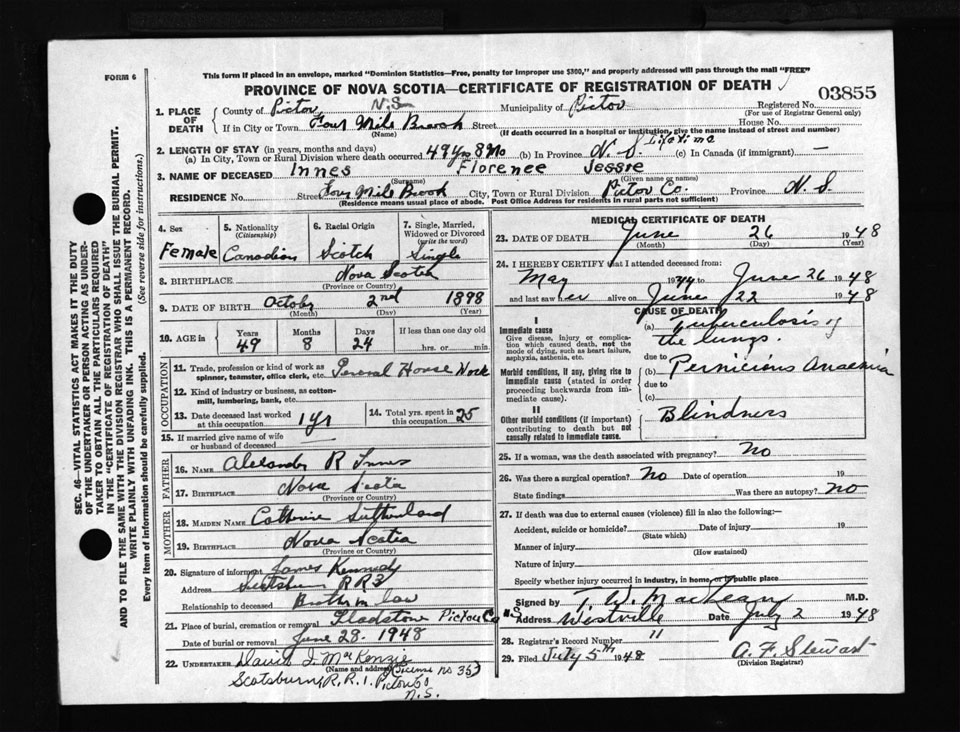 FORM 6
This form if placed in an envelope, marked "Dominion Statistics—Free, penalty for improper use $300," and properly addressed will pass through the mail "FREE"
PROVINCE OF NOVA SCOTIA—CERTIFICATE OF REGISTRATION OF DEATH
03855
1. PLACE OF DEATH
County of Pictou N.S. Municipality of Pictou Registered No.
(For use of Registrar General only)
If in City or Town Four Mile Brook Street House No.
(Name) (If death occurred in a hospital or institution, give the name instead of street and number)
2. LENGTH OF STAY (in years, months and days)
(a) In City, Town or Rural Division where death occurred 49 yrs 8 Mo (b) In Province N.S. Life time (c) In Canada (if immigrant) —
3. NAME OF DECEASED Innes Florenee Jessie
(Surname) (Given name or names)
RESIDENCE No. Street Four Mile Brook City, Town or Rural Division Pictou Co. Province N.S.
(Residence means usual place of abode. Post Office Address for residents in rural parts not sufficient)
4. Sex
Female
5. Nationality (Citizenship)
Canadian
6. Racial Origin
Scotch
7. Single, Married, Widowed or Divorced (write the word)
Single
8. BIRTHPLACE Nova Scotia
(Province or Country)
9. DATE OF BIRTH October 2nd 1898
(Month) (Day) (Year)
10. AGE in Years Months Days If less than one day old
49 8 24 hrs. or min.
OCCUPATION
11. Trade, profession or kind of work as spinner, teamster, office clerk, etc. General House Work
12. Kind of industry or business, as cotton-mill, lumbering, bank, etc.
13. Date deceased last worked at this occupation 1 yr
14. Total yrs. spent in this occupation 25
15. If married give name of wife or husband of deceased
FATHER
16. NAME Alexander R Innes
17. BIRTHPLACE Nova Scotia
(Province or Country)
MOTHER
18. MAIDEN NAME Catherine Sutherland
19. BIRTHPLACE Nova Scotia
(Province or Country)
20. Signature of informant James Kennedy
Address Scotsburn RR3
Relationship to deceased Brother in law
21. Place of burial, cremation or removal Gladstone Pictou Co N.S.
Date of burial or removal June 28. 1948
22. UNDERTAKER David J. MacKenzie
(Name and address) License no 353
Scotsburn, R.R.1. Pictou Co
N.S.
MEDICAL CERTIFICATE OF DEATH
23. DATE OF DEATH June 26 1948
(Month) (Day) (Year)
24. I HEREBY CERTIFY that I attended deceased from:
May 1944 to June 26 1948
and last saw her alive on June 22 1948
CAUSE OF DEATH
I
Immediate cause
Give disease, injury or complication which caused death, not the mode of dying, such as heart failure, asphyxia, asthenia, etc.
(a) tuberculosis of the lungs.
due to
Morbid conditions, if any, giving rise to immediate cause (stated in order proceeding backwards from immediate cause).
(b) Pernicious Anaemia
due to
(c)
II
Other morbid conditions (if important) contributing to death but not causally related to immediate cause.
Blindness
25. If a woman, was the death associated with pregnancy? No
26. Was there a surgical operation? No Date of operation 19
State findings Was there an autopsy? No
27. If death was due to external causes (violence) fill in also the following:—
Accident, suicide or homicide? Date of injury 19
(State which)
Manner of injury
(How sustained)
Nature of injury
Specify whether injury occurred in industry, in home, or in public place
Signed by T. W. MacLean M.D.
Address Westville Date July 2 1948
28. Registrar's Record Number 11
29. Filed July 5th 1948 A. F. Stewart
(Division Registrar)
SEC. 46—VITAL STATISTICS ACT MAKES IT THE DUTY
OF THE UNDERTAKER OR PERSON ACTING AS UNDERTAKER TO OBTAIN ALL THE PARTICULARS REQUIRED
IN THE "CERTIFICATE OF REGISTRATION OF DEATH"
AND TO FILE THE SAME WITH THE DIVISION REGISTRAR WHO SHALL ISSUE THE BURIAL PERMIT.
WRITE PLAINLY WITH UNFADING INK. THIS IS A PERMANENT RECORD.
Every item of information should be carefully supplied. (See reverse side for instructions.)